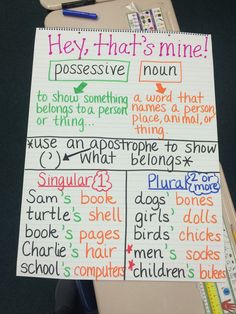 Hey, that's mine!
possessive noun
to show something
belongs to a person
or thing...
a word that
names a person
place, animal, or
thing.
*use an apostrophe to show
(') what belongs*
Singular 1
Sam's book
turtle's shell
book's pages
Charlie's hair
school's computers
Plural 2 or more
dogs' bones
girls' dolls
birds' chicks
men's socks
children's bikes